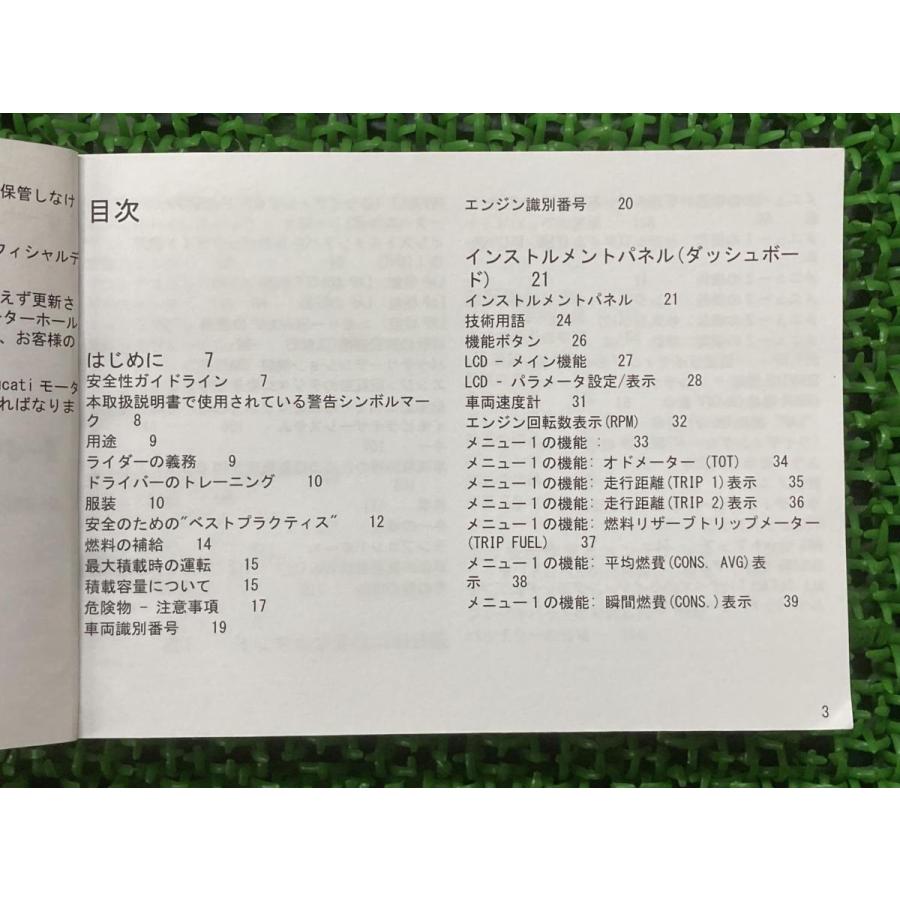 保管しなけ
フィシャルデ
えず更新さ
ーターホール
、お客様の
ucati モータ
ればなりま
目次
はじめに 7
安全性ガイドライン 7
本取扱説明書で使用されている警告シンボルマー
ク 8
用途 9
ライダーの義務 9
ドライバーのトレーニング 10
服装 10
安全のための"ベストプラクティス" 12
燃料の補給 14
最大積載時の運転 15
積載容量について 15
危険物 - 注意事項 17
車両識別番号 19
エンジン識別番号 20
インストルメントパネル(ダッシュボー
ド) 21
インストルメントパネル 21
技術用語 24
機能ボタン 26
LCD - メイン機能 27
LCD - パラメータ設定/表示 28
車両速度計 31
エンジン回転数表示(RPM) 32
メニュー1の機能 : 33
メニュー1の機能: オドメーター (TOT) 34
メニュー1の機能: 走行距離(TRIP 1)表示 35
メニュー1の機能: 走行距離(TRIP 2)表示 36
メニュー1の機能: 燃料リザーブトリップメーター
(TRIP FUEL) 37
メニュー1の機能: 平均燃費(CONS. AVG)表
示 38
メニュー1の機能: 瞬間燃費(CONS.)表示 39
3